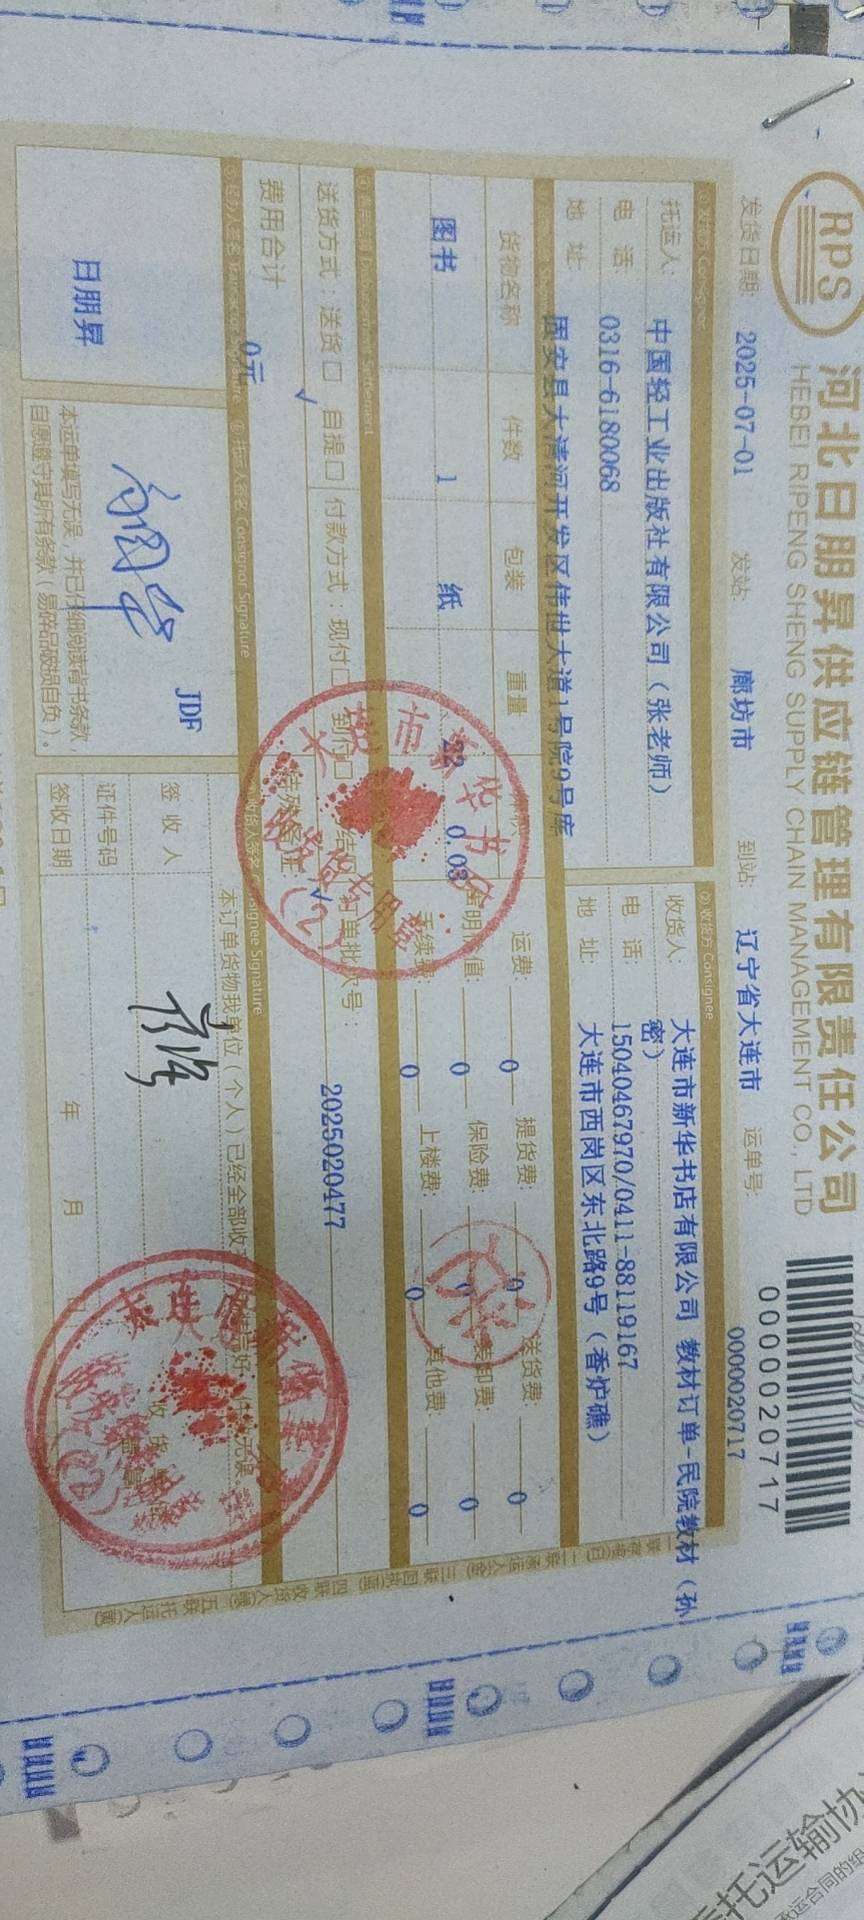 RPS
河北日朋昇供应链管理有限责任公司
HEBEI RIPENG SHENG SUPPLY CHAIN MANAGEMENT CO., LTD
0000020717
发货日期: 2025-07-01 发站: 廊坊市 到站: 辽宁省大连市 运单号: 0000020717
②收货方 Consignee
托运人: 中国轻工业出版社有限公司（张老师）
电 话: 0316-6180068
地 址: 固安县大清河开发区伟世大道1号院9号库
收货人: 大连市新华书店有限公司 教材订单-民院教材（孙
密）
电 话: 15040467970/0411-88119167
地 址: 大连市西岗区东北路9号（香炉礁）
货物名称 件数 包装 重量
图书 1 纸 22 0.03
运费: 0 提货费: 0 送货费: 0
0 保险费: 0 装卸费: 0
手续费: 0 上楼费: 0 其他费: 0
送货方式: 送货口 自提口 付款方式: 现付口 到付口
订单批次号: 2025020477
费用合计 0元
Consignor Signature
Consignee Signature
日朋昇
JDF
本运单填写无误，并已仔细阅读背书条款，
自愿遵守其所有条款（易碎品破损自负）。
本订单货物我单位（个人）已经全部收
签 收 人
证件号码
签收日期 年 月
托运输协